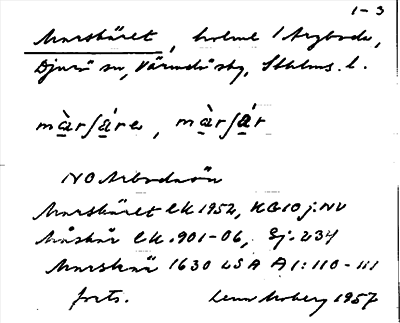 1-3
Marskäret, holme / Argboda,
Djurö sn, Värmdö skg, Sthlms. l.
màrʃára, màrʃár
NO Arbodaön
Marskäret EK 1952, KG 10 j. NV
Måskär EK .901-06, Ej. 234
Marskär 1630 LSA A1:110-111
forts. Lenn Moberg 1957